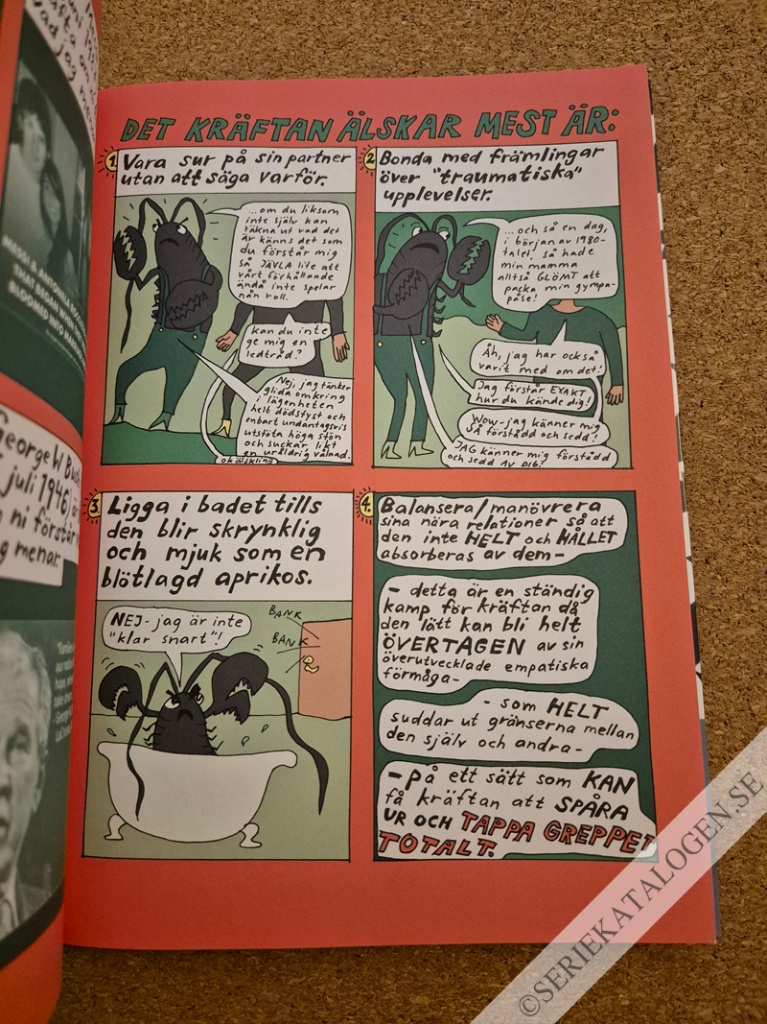 DET KRÄFTAN ÄLSKAR MEST ÄR:
1. Vara sur på sin partner
utan att säga varför.
...om du liksom
inte själv kan
räkna ut vad det
är känns det som
du förstår mig
så JÄVLA lite att
vårt förhållande
ändå inte spelar
nån roll.
Kan du inte
ge mig en
ledtråd?
Nej, jag tänker
glida omkring
i lägenheten
helt dödstyst och
enbart undantagsvis
utstöta höga stön
och suckar likt
en uråldrig vålnad.
ok älskling
2. Bonda med främlingar
över "traumatiska"
upplevelser.
...och så en dag,
i början av 1980-
talet, så hade
min mamma
alltså GLÖMT att
packa min gympa-
påse!
Åh, jag har också
varit med om det!
Jag förstår EXAKT
hur du kände dig!
Wow - jag känner mig
SÅ förstådd och sedd!
JAG känner mig förstådd
och sedd AV DIG!
3. Ligga i badet tills
den blir skrynklig
och mjuk som en
blötlagd aprikos.
NEJ - jag är inte
"klar snart"!
BANK
BANK
4. Balansera/manövrera
sina nära relationer så att
den inte HELT och HÅLLET
absorberas av dem -
- detta är en ständig
kamp för kräftan då
den lätt kan bli helt
ÖVERTAGEN av sin
överutvecklade empatiska
förmåga -
- som HELT
suddar ut gränserna mellan
den själv och andra -
- på ett sätt som KAN
få kräftan att SPÅRA
UR OCH TAPPA GREPPET
TOTALT.
vad jag
MESSI & ANTONELLA
THAT BEGAN WHEN
BLOOMED INTO
George W Bush
juli 1946) är
ni förstår
g menar.
©SERIEKATALOGEN.SE